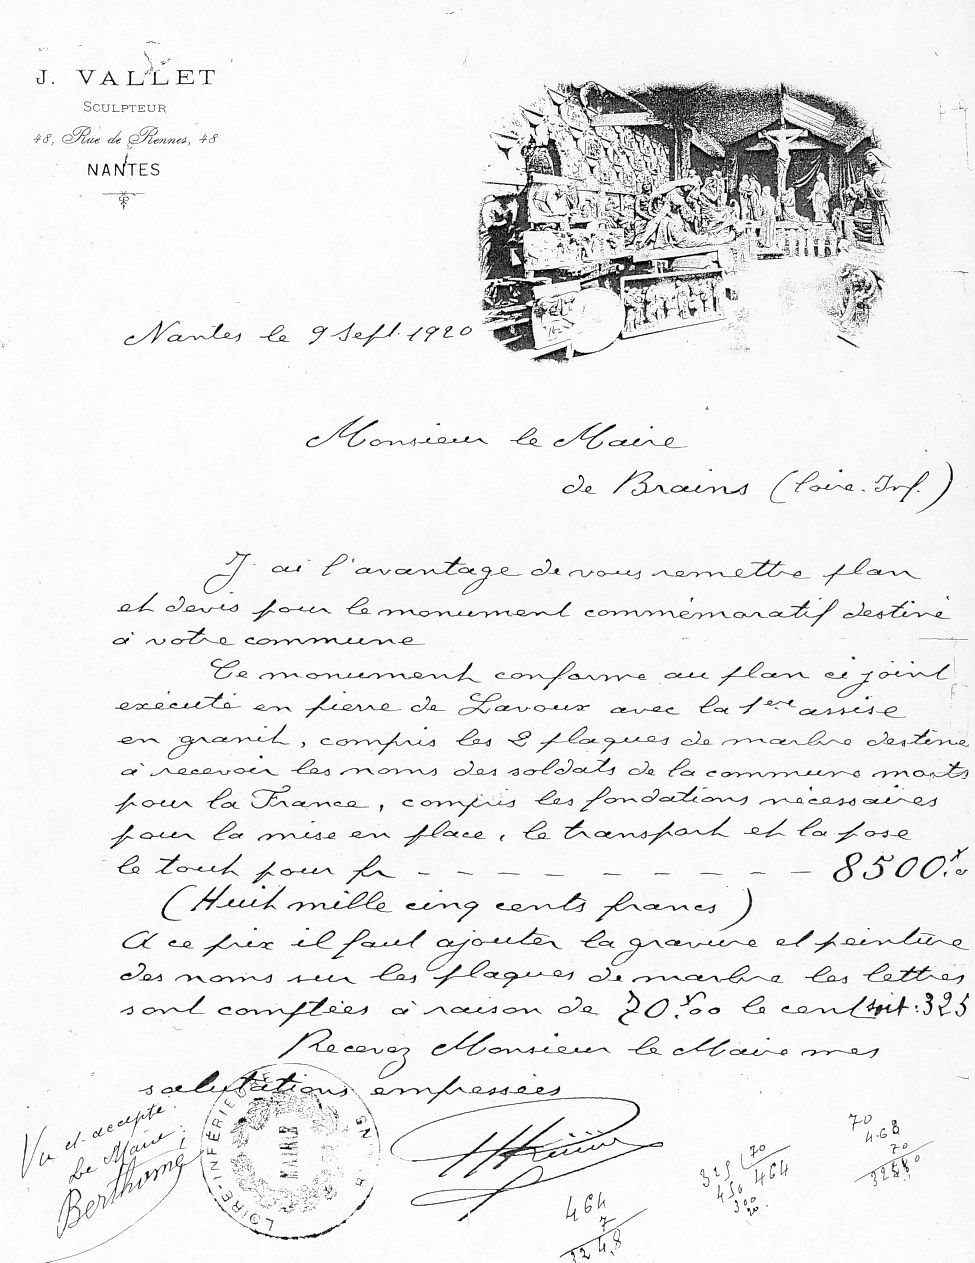 J. VALLET
SCULPTEUR
48, Rue de Rennes, 48
NANTES
Nantes le 9 Sept. 1920
Monsieur le Maire
de Brains (Loire. Inf.)
J'ai l'avantage de vous remettre plan
et devis pour le monument commémoratif destiné
à votre commune
Ce monument conforme au plan ci joint
exécuté en pierre de Lavoux avec la 1ère assise
en granit, compris les 2 plaques de marbre destiné
à recevoir les noms des soldats de la commune morts
pour la France, compris les fondations nécessaires
pour la mise en place, le transport et la pose
le tout pour fr - - - - - - - - - - 8500
(Huit mille cinq cents francs)
A ce prix il faut ajouter la gravure et peinture
des noms sur les plaques de marbre les lettres
sont comptées à raison de 70.00 le cent soit : 325
Recevez Monsieur le Maire mes
salutations empressées
Vu et accepté
Le Maire
Berthomé
LOIRE-INFÉRIEURE
MAIRIE
BRAINS
464
7
324,8
325 70
450 464
300
20
70
4.68
70